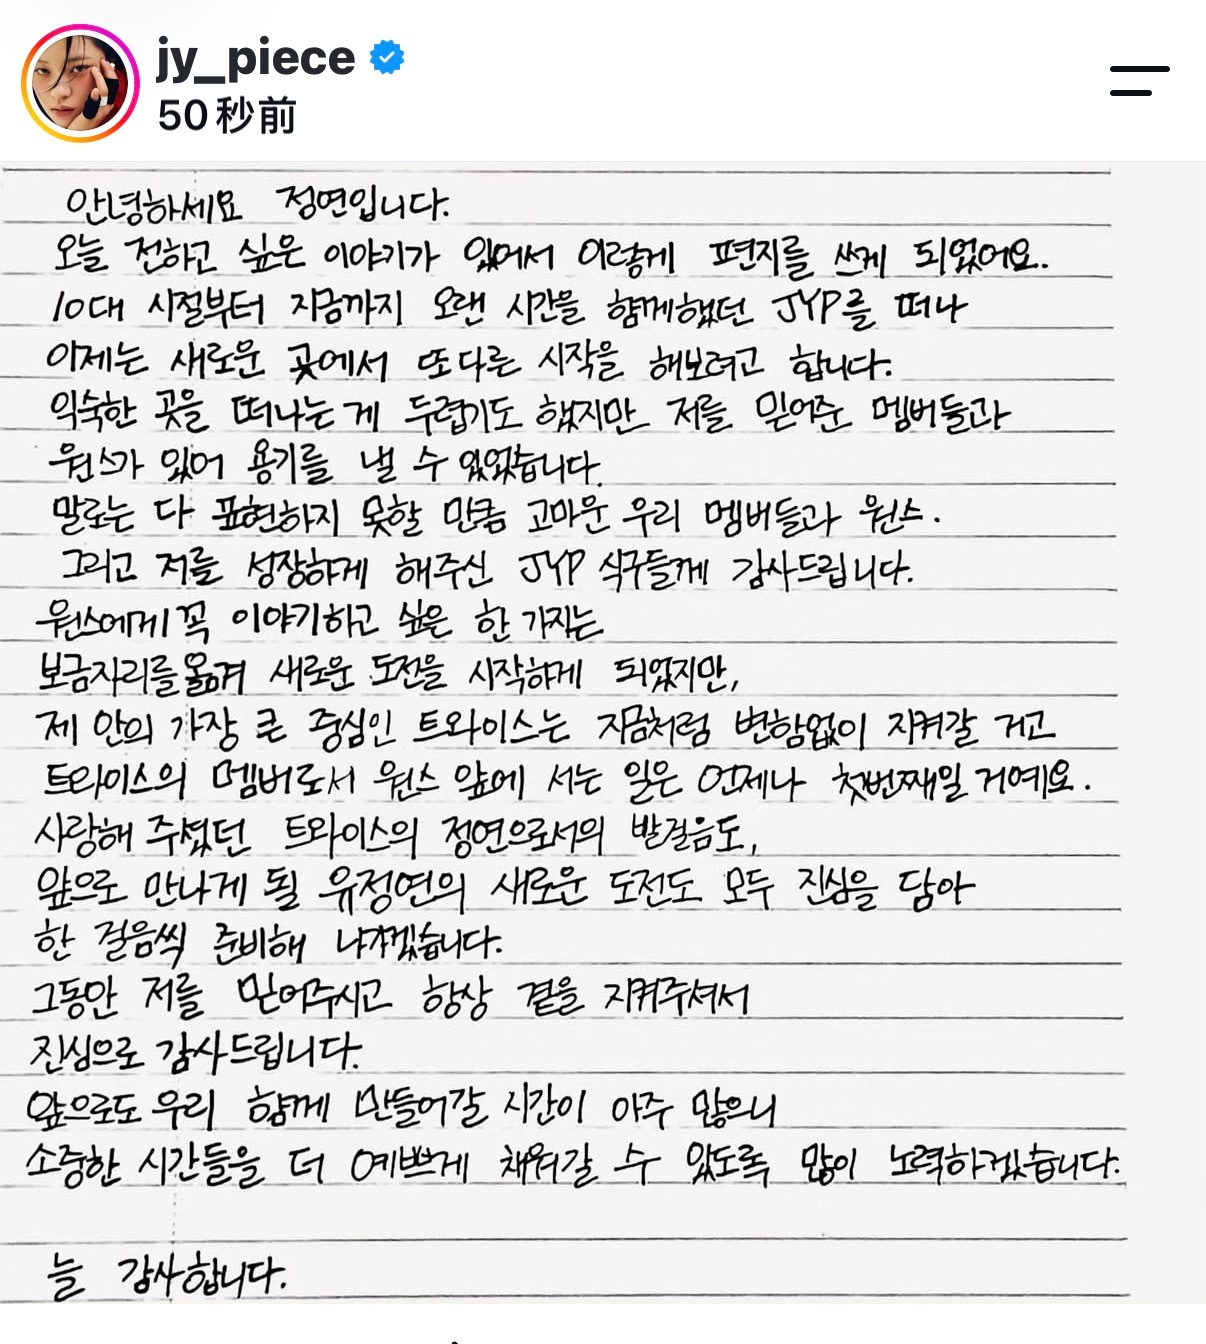 jy_piece
50秒前
안녕하세요 정연입니다.
오늘 전하고 싶은 이야기가 있어서 이렇게 편지를 쓰게 되었어요.
10대 시절부터 지금까지 오랜 시간을 함께했던 JYP를 떠나
이제는 새로운 곳에서 또다른 시작을 해보려고 합니다.
익숙한 곳을 떠나는게 두렵기도 했지만 저를 믿어준 멤버들과
원스가 있어 용기를 낼 수 있었습니다.
말로는 다 표현하지 못할 만큼 고마운 우리 멤버들과 원스.
그리고 저를 성장하게 해주신 JYP 식구들께 감사드립니다.
원스에게 꼭 이야기하고 싶은 한 가지는
보금자리를 옮겨 새로운 도전을 시작하게 되었지만,
제 안의 가장 큰 중심인 트와이스는 지금처럼 변함없이 지켜갈 거고
트와이스의 멤버로서 원스 앞에 서는 일은 언제나 첫번째일 거예요.
사랑해 주셨던 트와이스의 정연으로서의 발걸음도,
앞으로 만나게 될 유정연의 새로운 도전도 모두 진심을 담아
한 걸음씩 준비해 나가겠습니다.
그동안 저를 믿어주시고 항상 곁을 지켜주셔서
진심으로 감사드립니다.
앞으로도 우리 함께 만들어갈 시간이 아주 많으니
소중한 시간들을 더 예쁘게 채워갈 수 있도록 많이 노력하겠습니다.
늘 감사합니다.